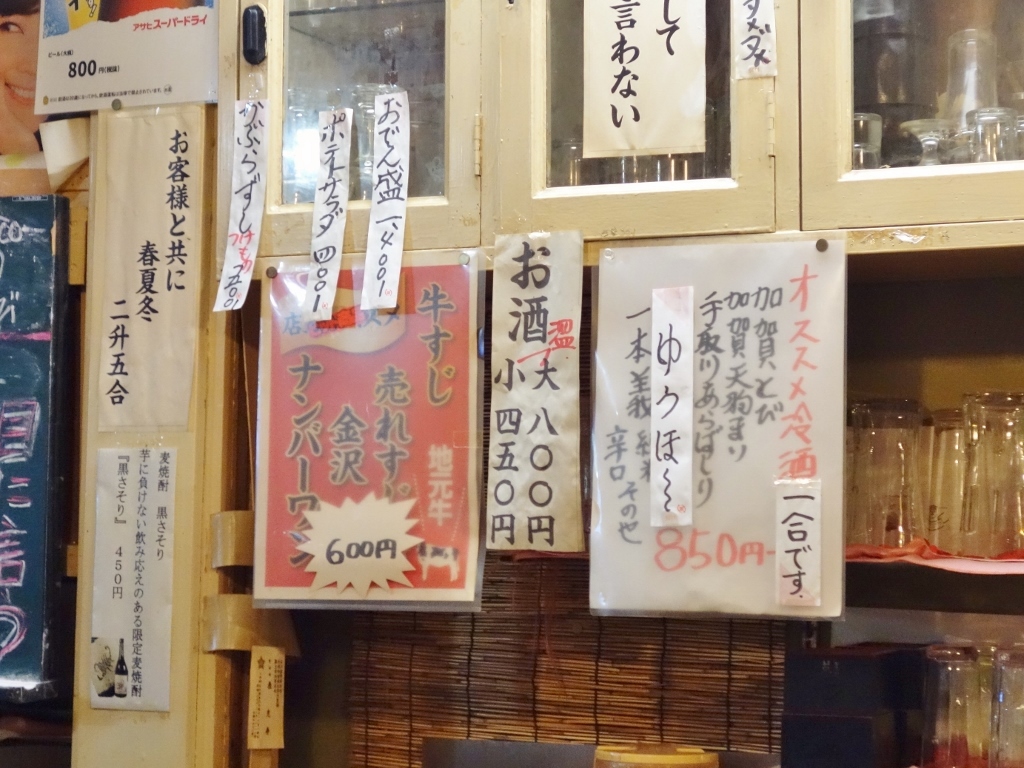 アサヒスーパードライ
ビール(大瓶)
800円(税抜)
お客様と共に
春夏冬
二升五合
麦焼酎 黒さそり
芋に負けない飲み応えのある限定麦焼酎
『黒さそり』 450円
かぶらずし
つけもの
五〇〇
ポテトサラダ 四〇〇
おでん盛 一、四〇〇
して
言わない
牛すじ
売れすじ
金沢
ナンバーワン
地元牛
600円
お酒
温
大 八〇〇円
小 四五〇円
オススメ冷酒
一合です。
加賀とび
加賀天狗まい
手取川あらばしり
ゆうほ
一本義
辛口 その他
850円